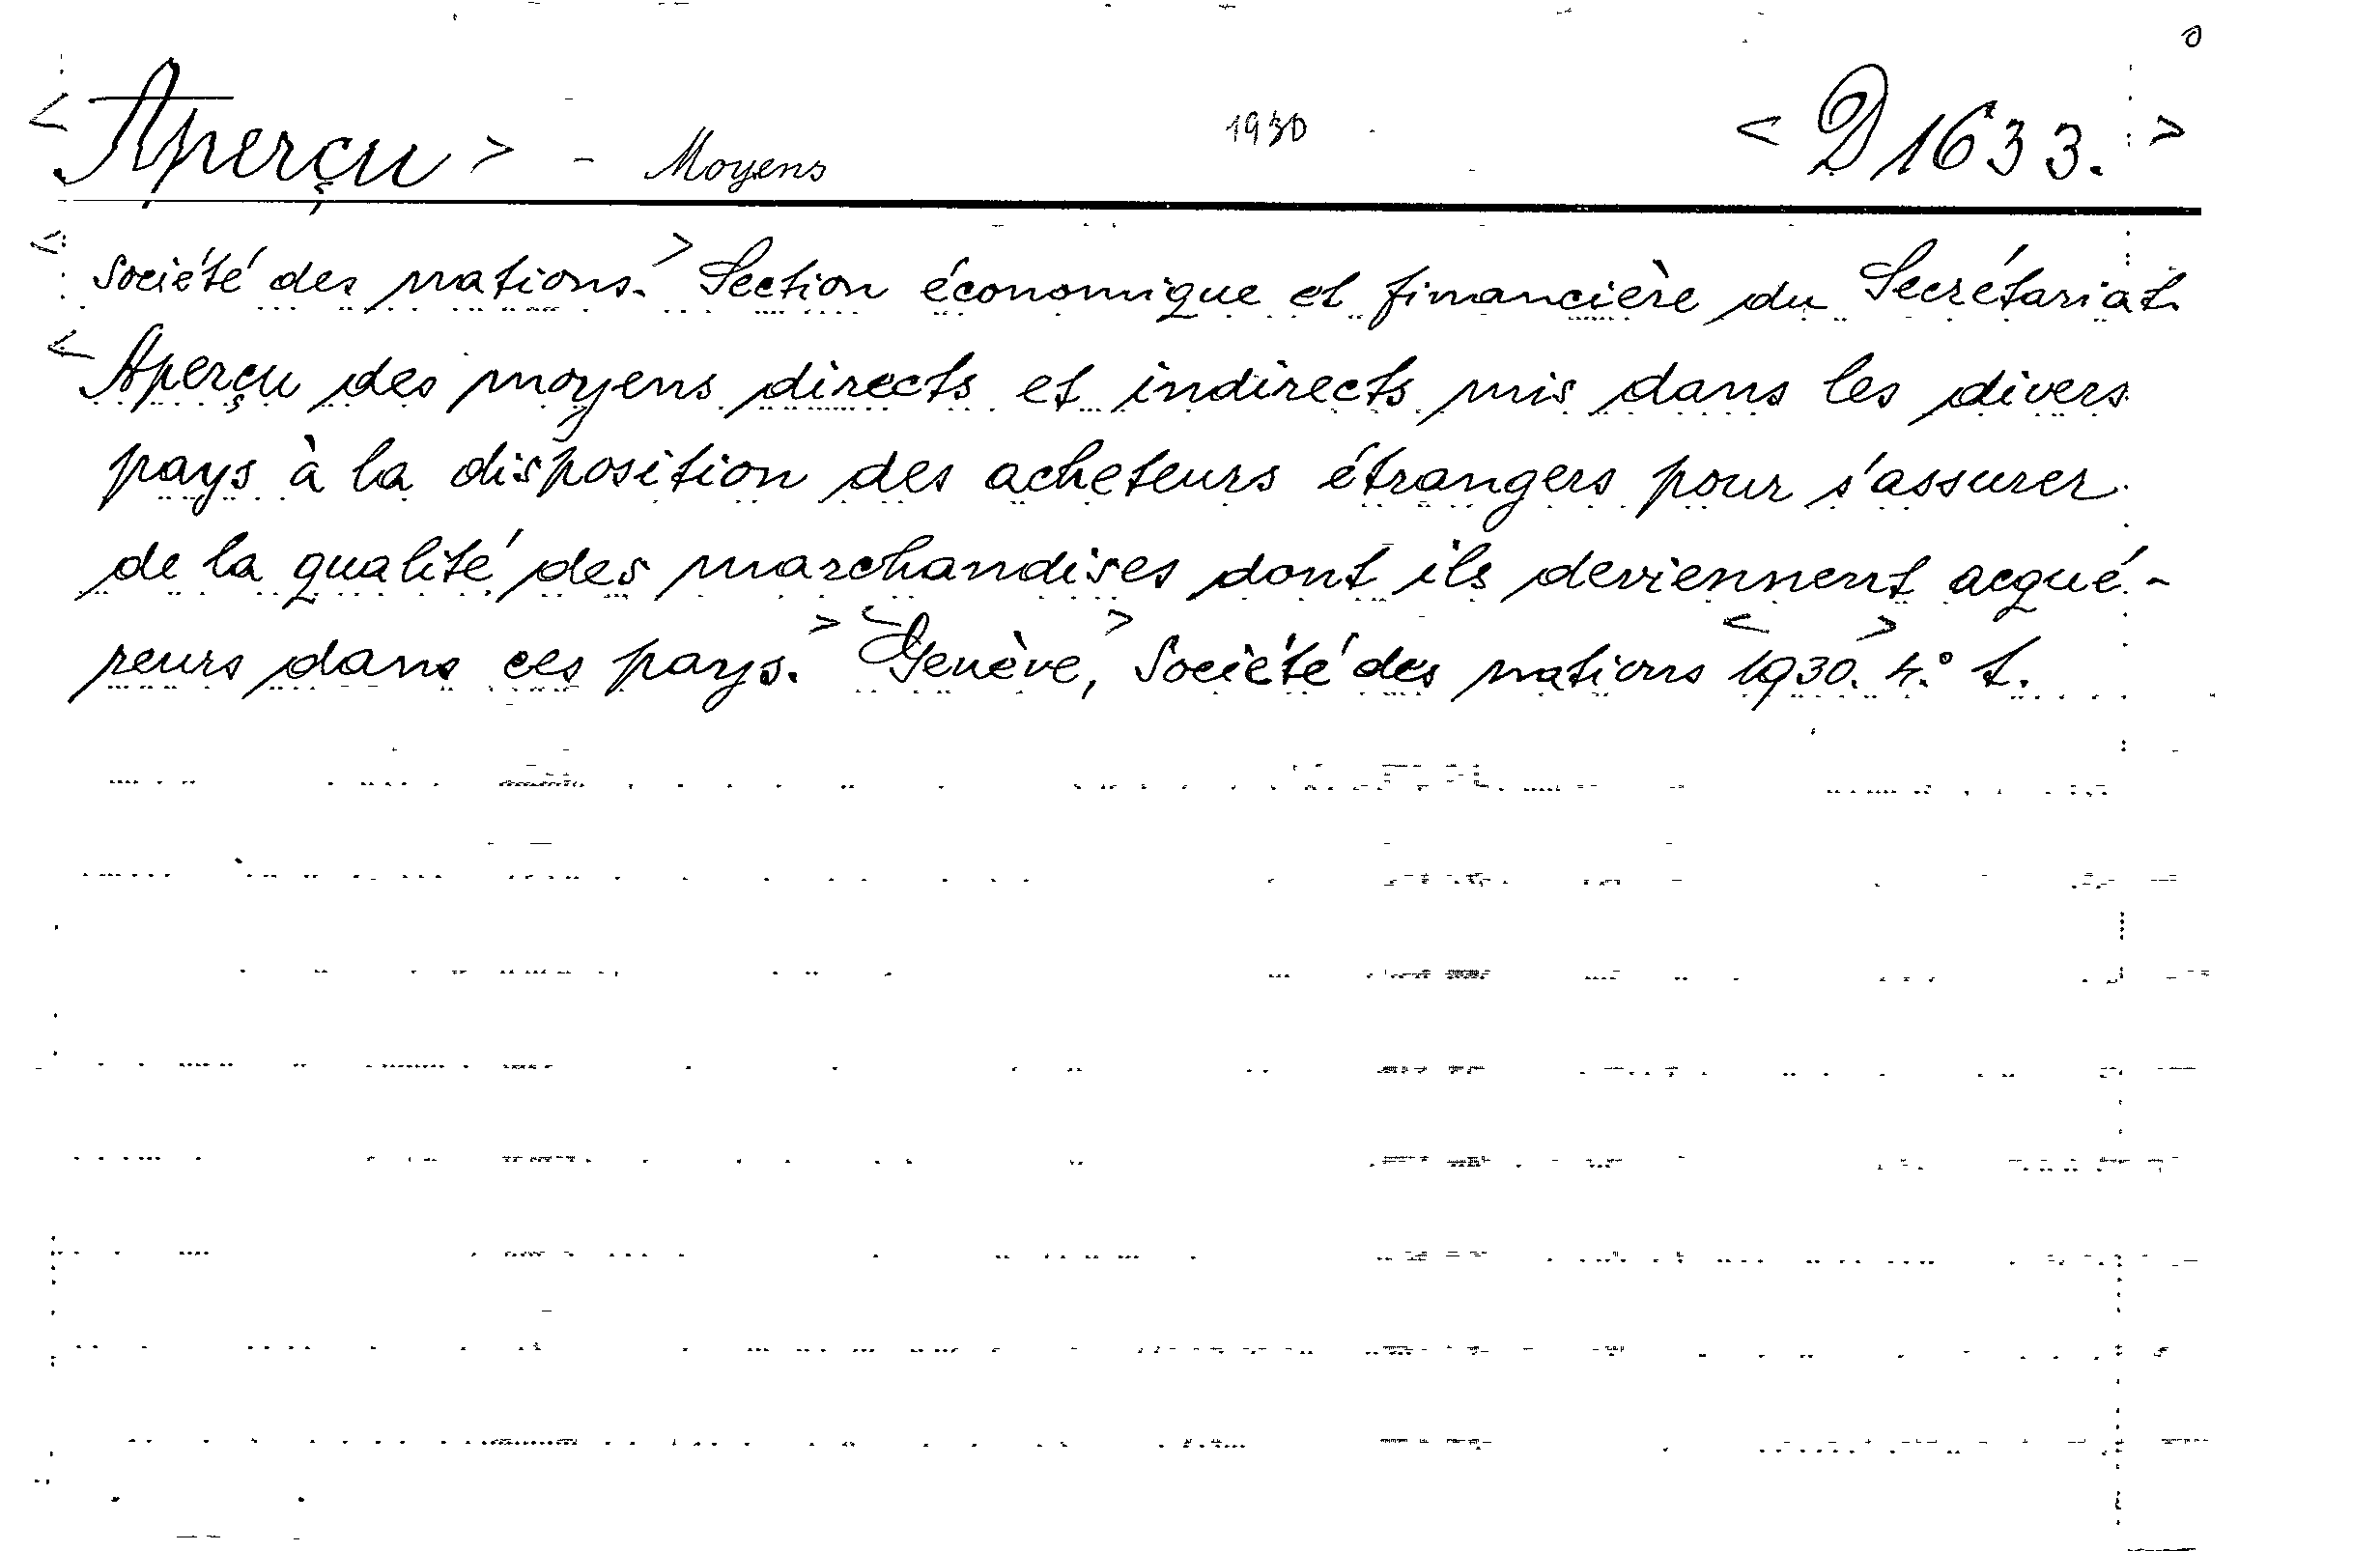 <Aperçu> - Moyens 1930 <D 1633.>
<Société des nations.> Section économique et financière du Secrétariat.
<Aperçu des moyens directs et indirects mis dans les divers
pays à la disposition des acheteurs étrangers pour s'assurer
de la qualité des marchandises dont ils deviennent acqué-
reurs dans ces pays.> <Genève,> Société des nations <1930.> 4.° t.